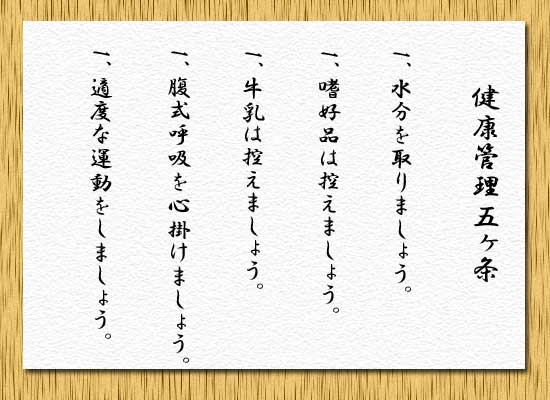 健康管理五ヶ条
一、水分を取りましょう。
一、嗜好品は控えましょう。
一、牛乳は控えましょう。
一、腹式呼吸を心掛けましょう。
一、適度な運動をしましょう。